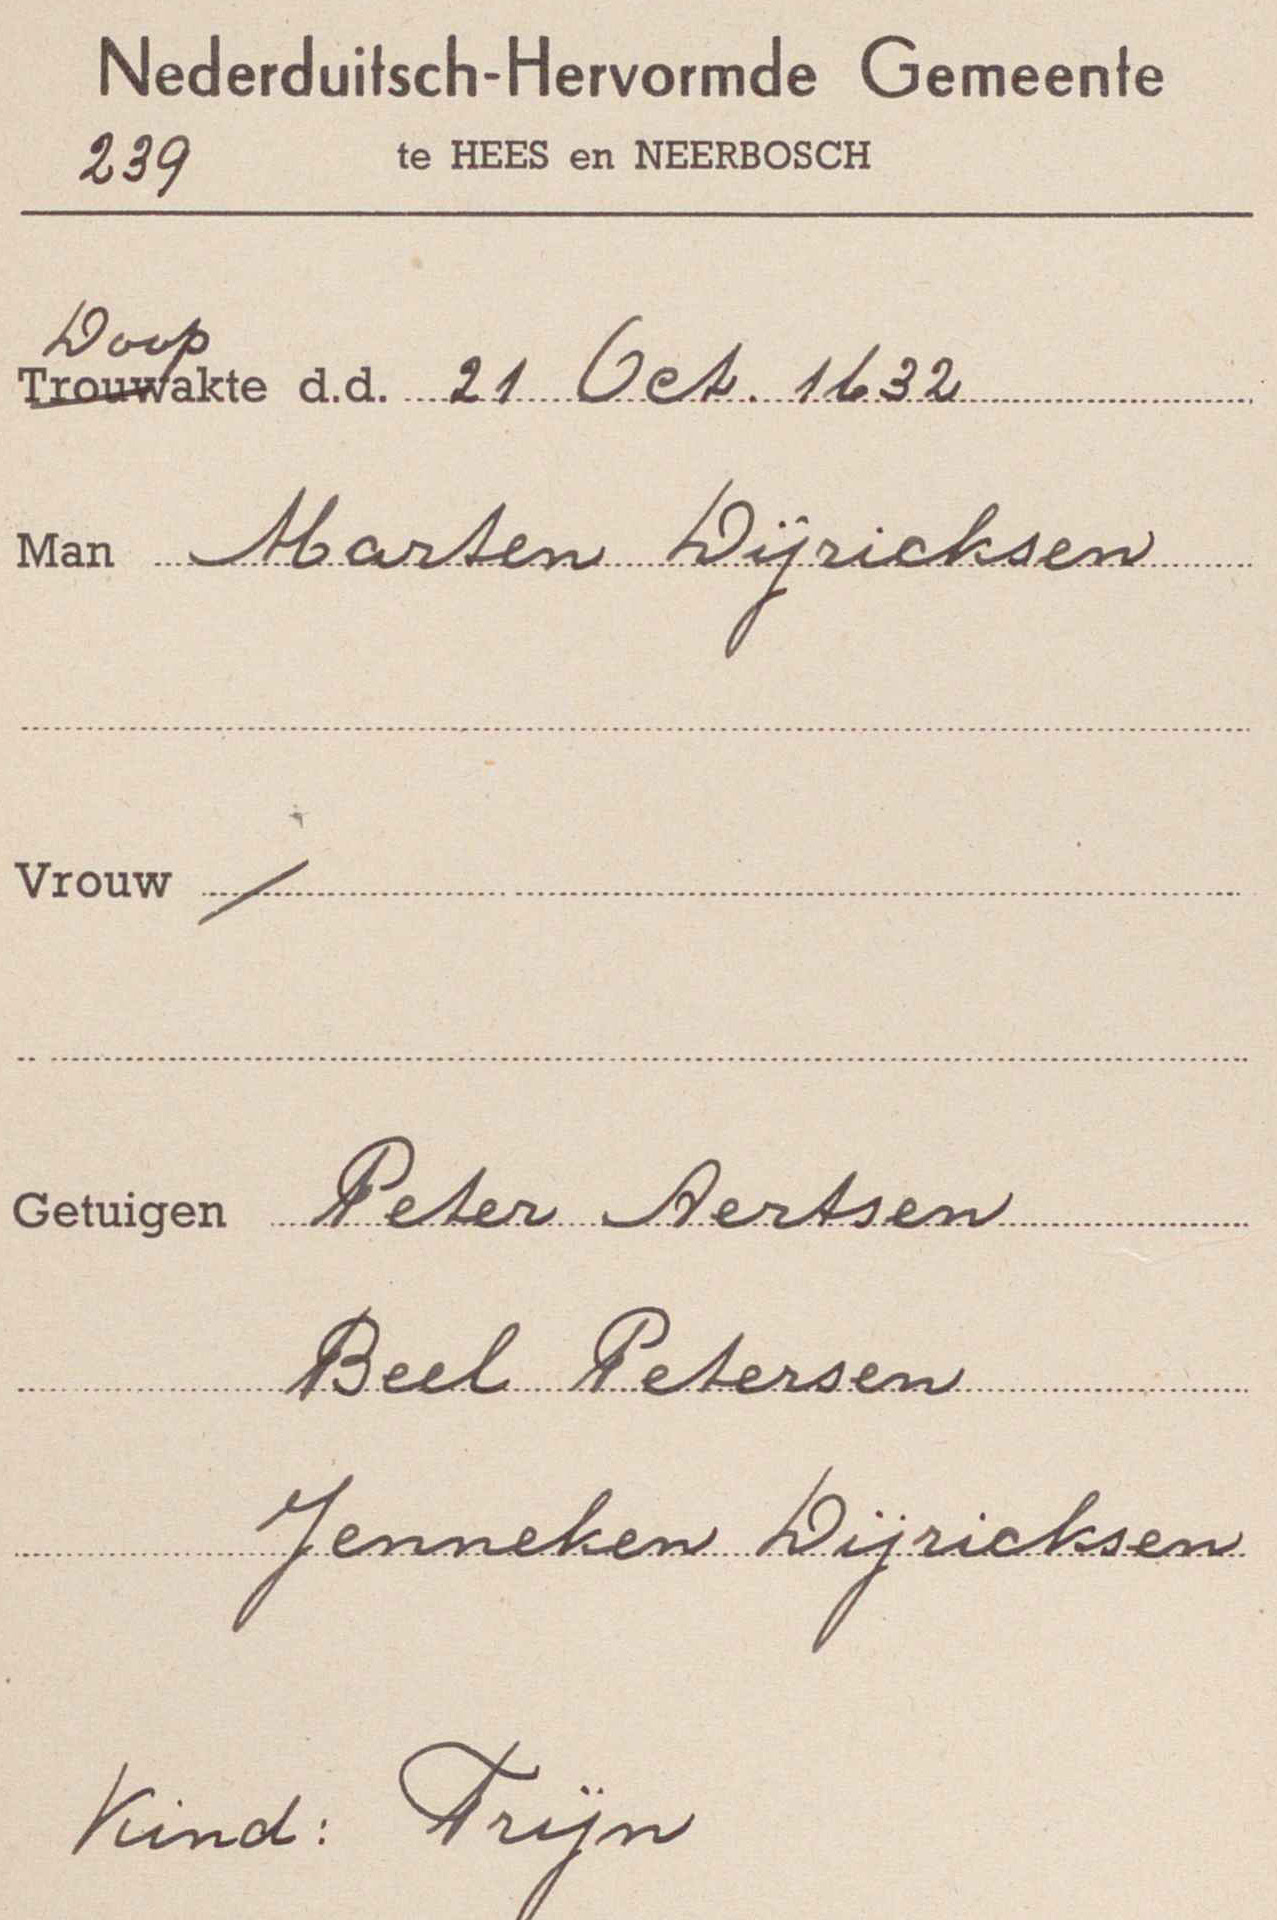 Nederduitsch-Hervormde Gemeente
239 te HEES en NEERBOSCH
Doop
Trouwakte d.d. 21 Oct. 1632
Man Marten Dijricksen
Vrouw /
Getuigen Peter Aertsen
Beel Petersen
Jenneken Dijricksen
Kind: Trijn